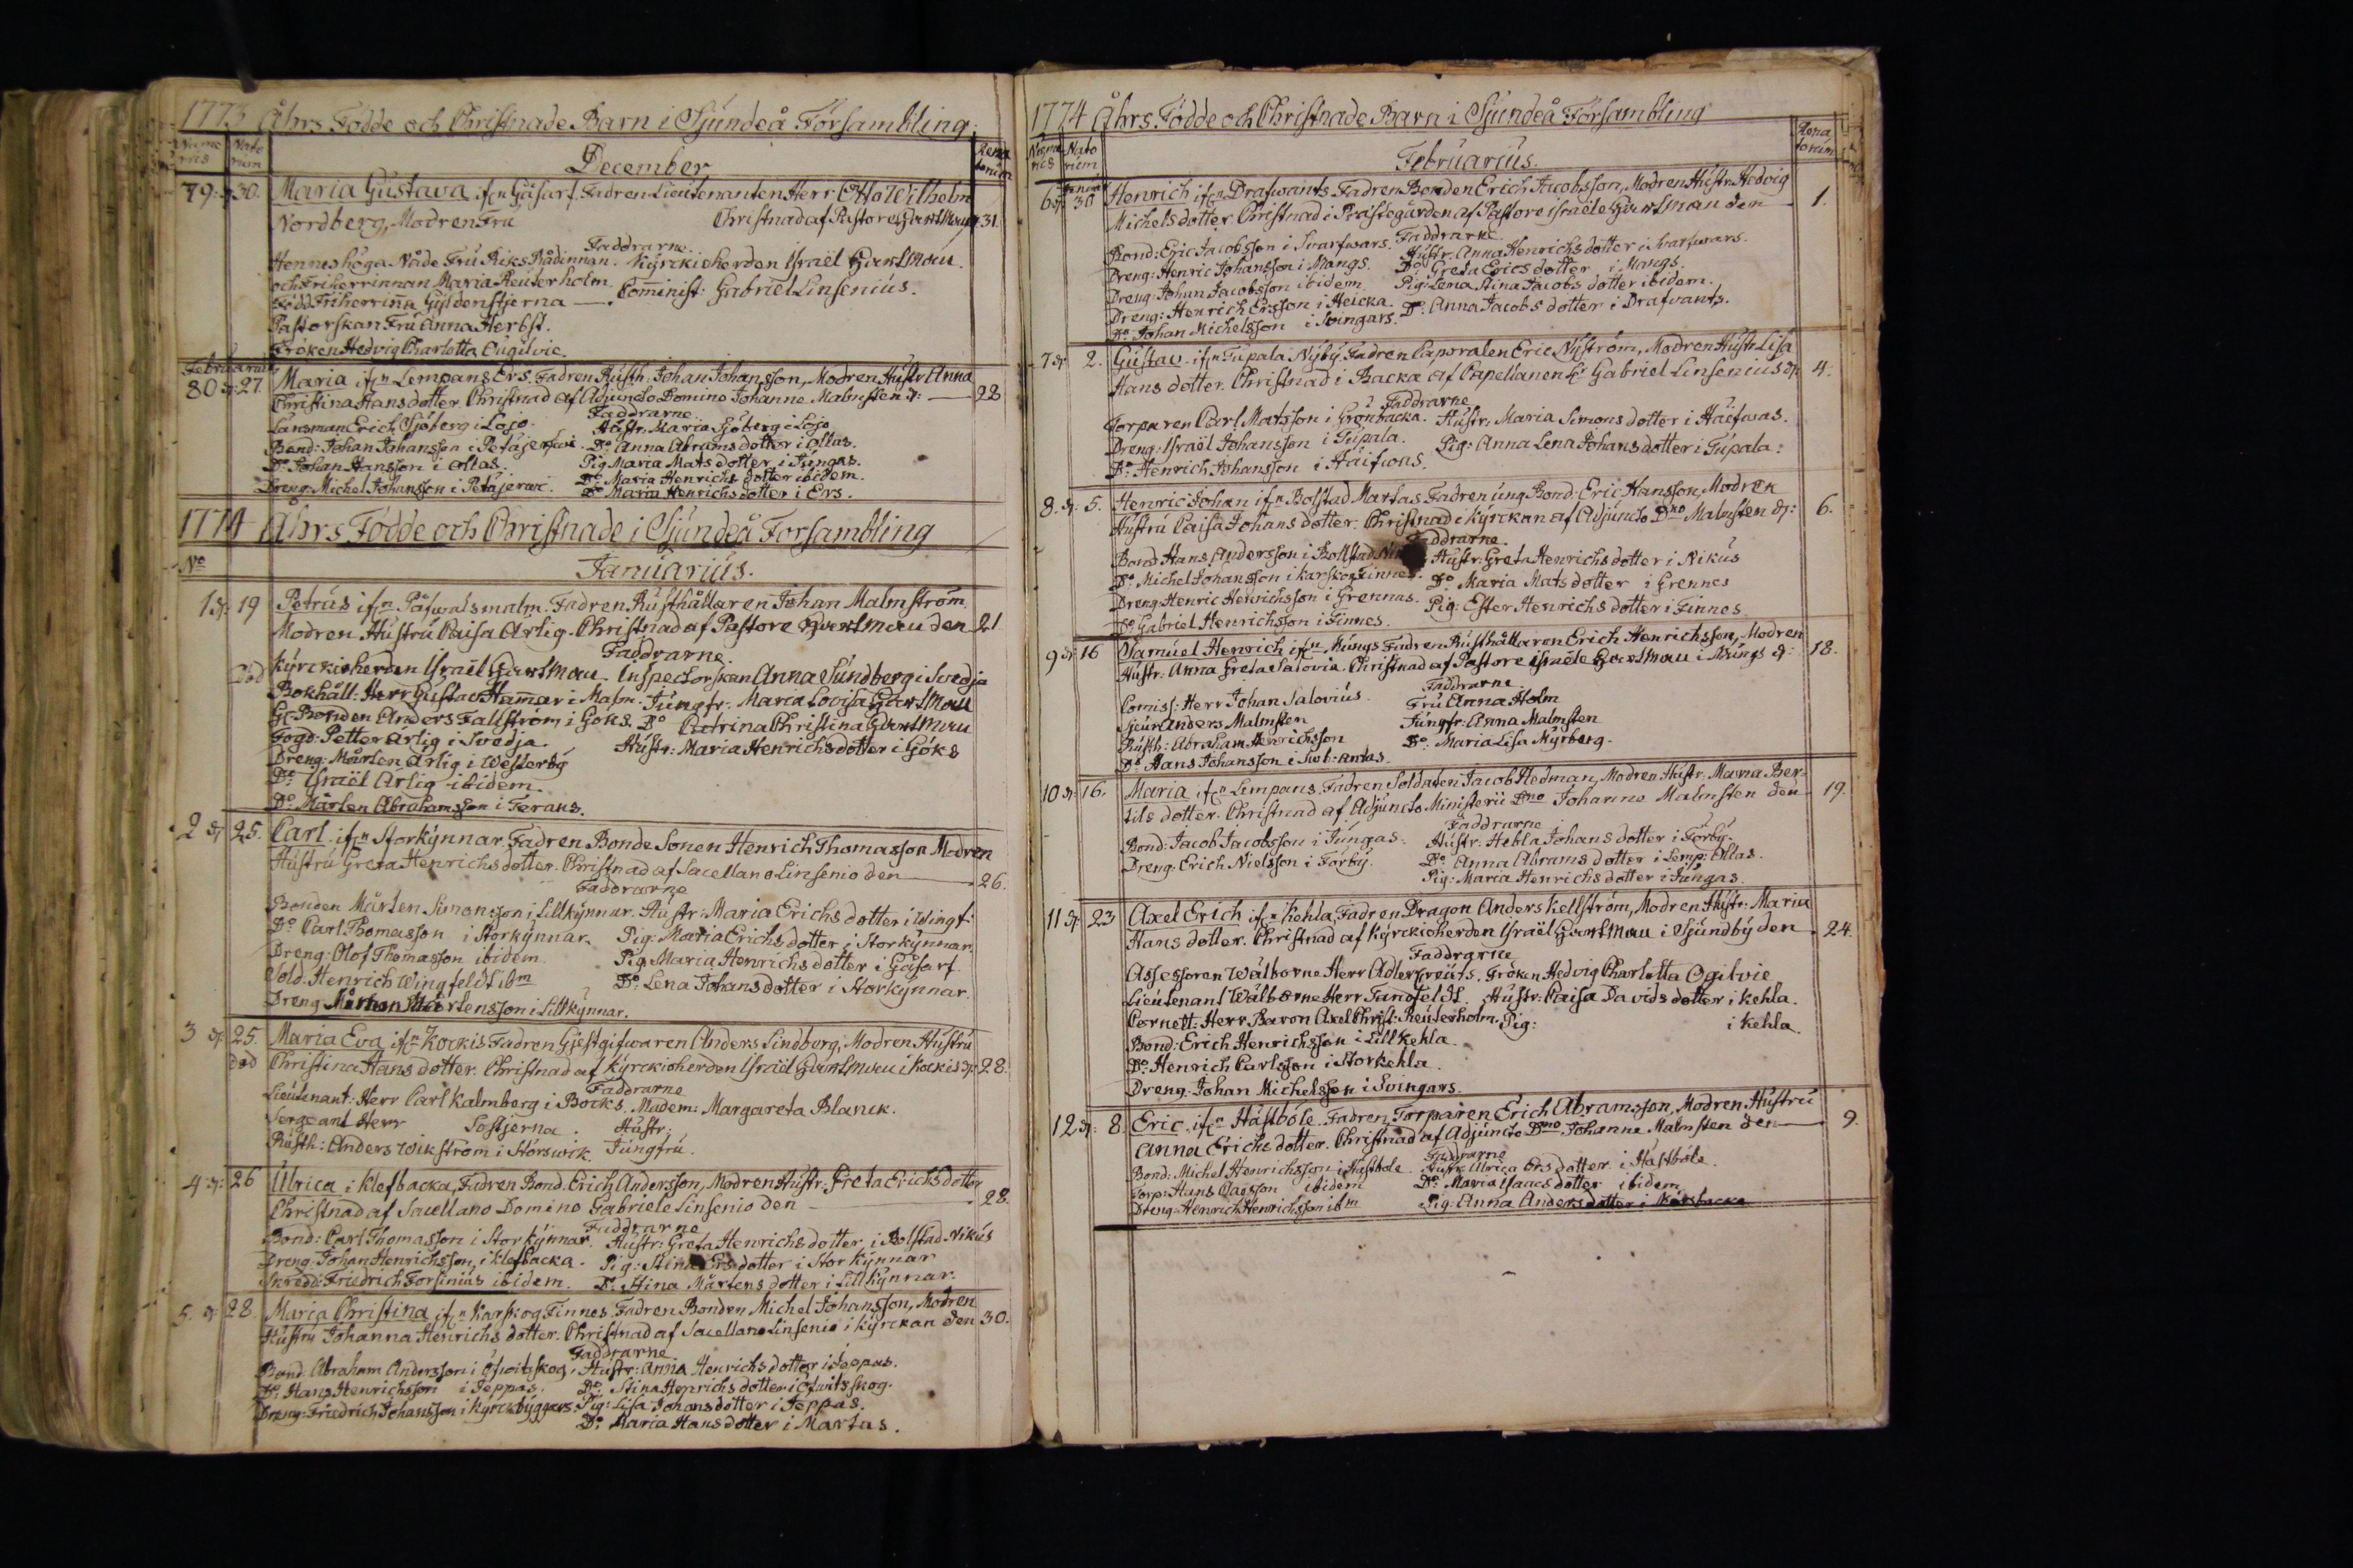 1773 Åhrs Födde och Christnade Barn i Sjundeå Försambling.
Nume rus Nato rum December Rena torum
79. 30. Maria Gustava ifrn Gåsarf. Fadren Lieutenanten Herr Otto Wilhelm
Nordberg, Modren Fru Christnad af Pastore 31.
Faddrarne.
Hennes höga Nåde Fru Riks Rådinnan. Kyrckioherden Israël
och Friherrinnan Maria Reuterholm. Cominist: Gabriel Linsenius.
född Friherrinna Gyldenstjerna
Pastorskan Fru Anna Herbst.
Fröken Hedvig Charlotta Ougilvie.
Februarius
80 27. Maria ifrn Lempans Ers. Fadren Rusth: Johan Johansson, Modren Hustr Anna
Christina Hans dotter. Christnad af Adjuncto Domino Johanne Malmsten d: 28
Faddrarne
Länsman Erich Sjöberg i Lojo. Hustr. Maria Sjöberg i Lojo
Bond: Johan Johansson i Petäjerfwi. Do Anna Abrams dotter i Ollas.
Do Johan Hansson i Ollas. Pig Maria Mats dotter i Jungas.
Dreng: Michel Johansson i Petäjerwi. Do Maria Henrichs dotter ibidem.
Do Maria Henrichs dotter i Ers.
1774 Åhrs Födde och Christnade i Sjundeå Forsambling
No Januarius.
1 d: 19 Petrus ifrn Påfwalsmalm. Fadren Rusthållaren Johan Malmström.
Modren Hustru Caisa Arlig. Christnad af Pastore den 21
Faddrarne.
död Kyrckioherden Israël Inspectorskan Anna Sundberg i Svedja
Bokhåll: Herr Gustav Hamar i Malm. Jungfr: Maria Lovisa
Bonden Anders Fallström i Göks. Do Catrina Christina
Fogd: Petter Arlig i Svedja. Hustr: Maria Henrichs dotter i Göks
Dreng: Mårten Arlig i Westerby
Do Israël Arlig ibidem.
Do Mårten Abrahamsson i Feraus.
2 d: 25. Carl. ifrn Storkynnar. Fadren Bonde Sonen Henrich Thomasson Modren
Hustru Greta Henrichs dotter. Christnad af Sacellano Linsenio den 26.
Faddrarne
Bonden Mårten Simonsson i Lillkynnar. Hustr: Maria Erichs dotter i Wingf:
Do Carl Thomasson i Storkynnar. Pig: Maria Erichs dotter i Storkynnar.
Dreng: Olof Thomasson ibidem. Pig Maria Henrichs dotter i Gåsarf.
Sold. Henrich Wingfeldt ibm Do: Lena Johans dotter i Storkynnar.
Dreng Mårten Mårtensson i Lillkynnar.
3 d: 25. Maria Eva ifrn Kockis Fadren Gjestgifwaren Anders Lindborg, Modren Hustru
död Christina Hans dotter. Christnad af Kyrckioherden Israël i Kockis d: 28.
Faddrarne
Lieutenant: Herr Carl Kalmberg i Böcks. Madem: Margareta Blanck.
Sergeant Herr Hustr:
Rusth: Anders Wikström i Störswik. Jungfru.
4 d: 26 Ulrica i Klefbacka, Fadren Bond. Erich Andersson, Modren Hustr. Greta Erichs dotter
Christnad af Sacellano Domino Gabriele Linsenio den 28.
Faddrarne
Bond: Carl Thomasson i Stor kynnar. Hustr: Greta Henrichs dotter i Bolstad Nikus
Dreng: Johan Henrichsson, i Klefbacka. Pig: Stina Ers dotter i Stor Kynnar
Skrädd: Friedrich Forsinius ibidem. Do: Stina Mårtens dotter i Lill Kynnar.
5. d: 28. Maria Christina ifrn Karskog Finnes. Fadren Bonden Michel Johansson, Modren
Hustru Johanna Henrichs dotter. Christnad af Sacellano Linsenio i Kyrckan den 30.
Faddrarne
Bond: Abraham Andersson i Öfwitskog. Hustr: Anna Henrichs dotter i Jeppas.
Do: Hans Henrichsson i Jeppas. Do: Stina Henrichs dotter i Öfwitsskog.
Dreng: Friedrich Johansson i Kyrckbyggars. Pig: Lisa Johans dotter i Jeppas.
Do: Maria Hans dotter i Martas.
1774 Åhrs Födde och Christnade Barn i Sjundeå Försambling
Nume rus Nato rum Februarius. Rena torum
6 d: 30 Henrich ifrn Drafwants Fadren Bonden Erich Jacobsson, Modren Hustr. Hedvig
Michels dotter Christnad i Prästegården af Pastore Israële den 1.
Faddrarne
Bond: Eric Jacobsson i Svartwars. Hustr. Anna Henrichs dotter i Svartwars.
Dreng: Henric Johansson i Mangs. Do Greta Erics dotter i Mangs.
Dreng: Johan Jacobsson ibidem. Pig: Lena Stina Jacobs dotter ibidem.
Dreng: Henrich Ersson i Heicka. Do: Anna Jacobs dotter i Drafvants.
Do: Johan Michelsson i Svingars.
7 d: 2. Gustav. ifrn Tupala Nyby. Fadren Caporalen Eric Nyström, Modren Hustr Lisa
Hans dotter. Christnad i Backa af Capellanen Gabriel Linsenius d: 4.
Faddrarne
Torparen Carl Matsson i Grönbacka. Hustr: Maria Simons dotter i Häifwas.
Dreng: Israël Johansson i Tupala. Pig: Anna Lena Johans dotter i Tupala.
Do: Henrich Johansson i Häifwas.
8. d: 5. Henric Johan ifrn Bolstad Martas Fadren ung Bond: Eric Hansson, Modren
Hustru Caisa Johans dotter. Christnad i Kyrckan af Adjuncto Dno Malmsten d: 6.
Faddrarne
Bond Hans Andersson i Bollstad Hustr: Greta Henrichs dotter i Nikus
Do: Michel Johansson i Karskog Finnes. Do Maria Mats dotter i Grennes
Dreng: Henric Henrichsson i Grennas. Pig: Ester Henrichs dotter i Finnes.
Do: Gabriel Henrichsson i Finnes.
9 d: 16 Samuel Henrich ifrn Mungs Fadren Rusthållaren Erich Henrichsson, Modren
Hustr. Anna Greta Salovia. Christnad af Pastore Israële i Mungs d: 18.
Faddrarne
Comiss: Herr Johan Salovius. Fru Anna Holm
Sjeur Anders Malmsten Jungfr: Anna Malmsten
Rusth: Abraham Henrichsson Do: Maria Lisa Nyrberg.
Do: Hans Johansson i
10 d: 16. Maria ifrn Lempans. Fadren Soldaten Jacob Hedman, Modren Hustr. Maria Ber-
tils dotter. Christnad af Adjuncto Ministerii Dno Johanne Malmsten den 19.
Faddrarne
Bond: Jacob Jacobsson i Jungas. Hustr: Hebla Johans dotter i Förby.
Dreng: Erich Nielsson i Förby. Do Anna Abrams dotter i Lemp: Ollas.
Pig: Maria Henrichs dotter i Jungas.
11 d: 23 Axel Erich ifrn Kehla, Fadren Dragon Anders Kellström, Modren Hustr: Maria
Hans dotter. Christnad af Kyrckioherden Israël i Sjundby den 24.
Faddrarne
Assessoren Wälborne Herr Adlercreutz. Fröken Hedvig Charlotta Ogilvie
Lieutenant Wälborne Herr Tandfeldt. Hustr: Caisa Davids dotter i Kehla.
Cornett: Herr Baron Axel Christ: Reuterholm. Pig: i Kehla.
Bond: Erich Henrichsson i Lill Kehla
Do: Henrich Carlsson i Storkehla.
Dreng. Johan Michelsson i Svingars.
12 d: 8. Eric. ifrn Hästböle. Fadren Torparen Erich Abramsson, Modren Hustru
Anna Erichs dotter. Christnad af Adjuncto Dno Johanne Malmsten den 9.
Faddrarne
Bond: Michel Henrichsson i Hästböle. Hustr. Ulrica Ers dotter i Hästböle.
Torp: Hans Claesson ibidem Do: Maria Isaacs dotter ibidem
Dreng: Henrich Henrichsson ibm Pig: Anna Anders dotter i Korsbacka